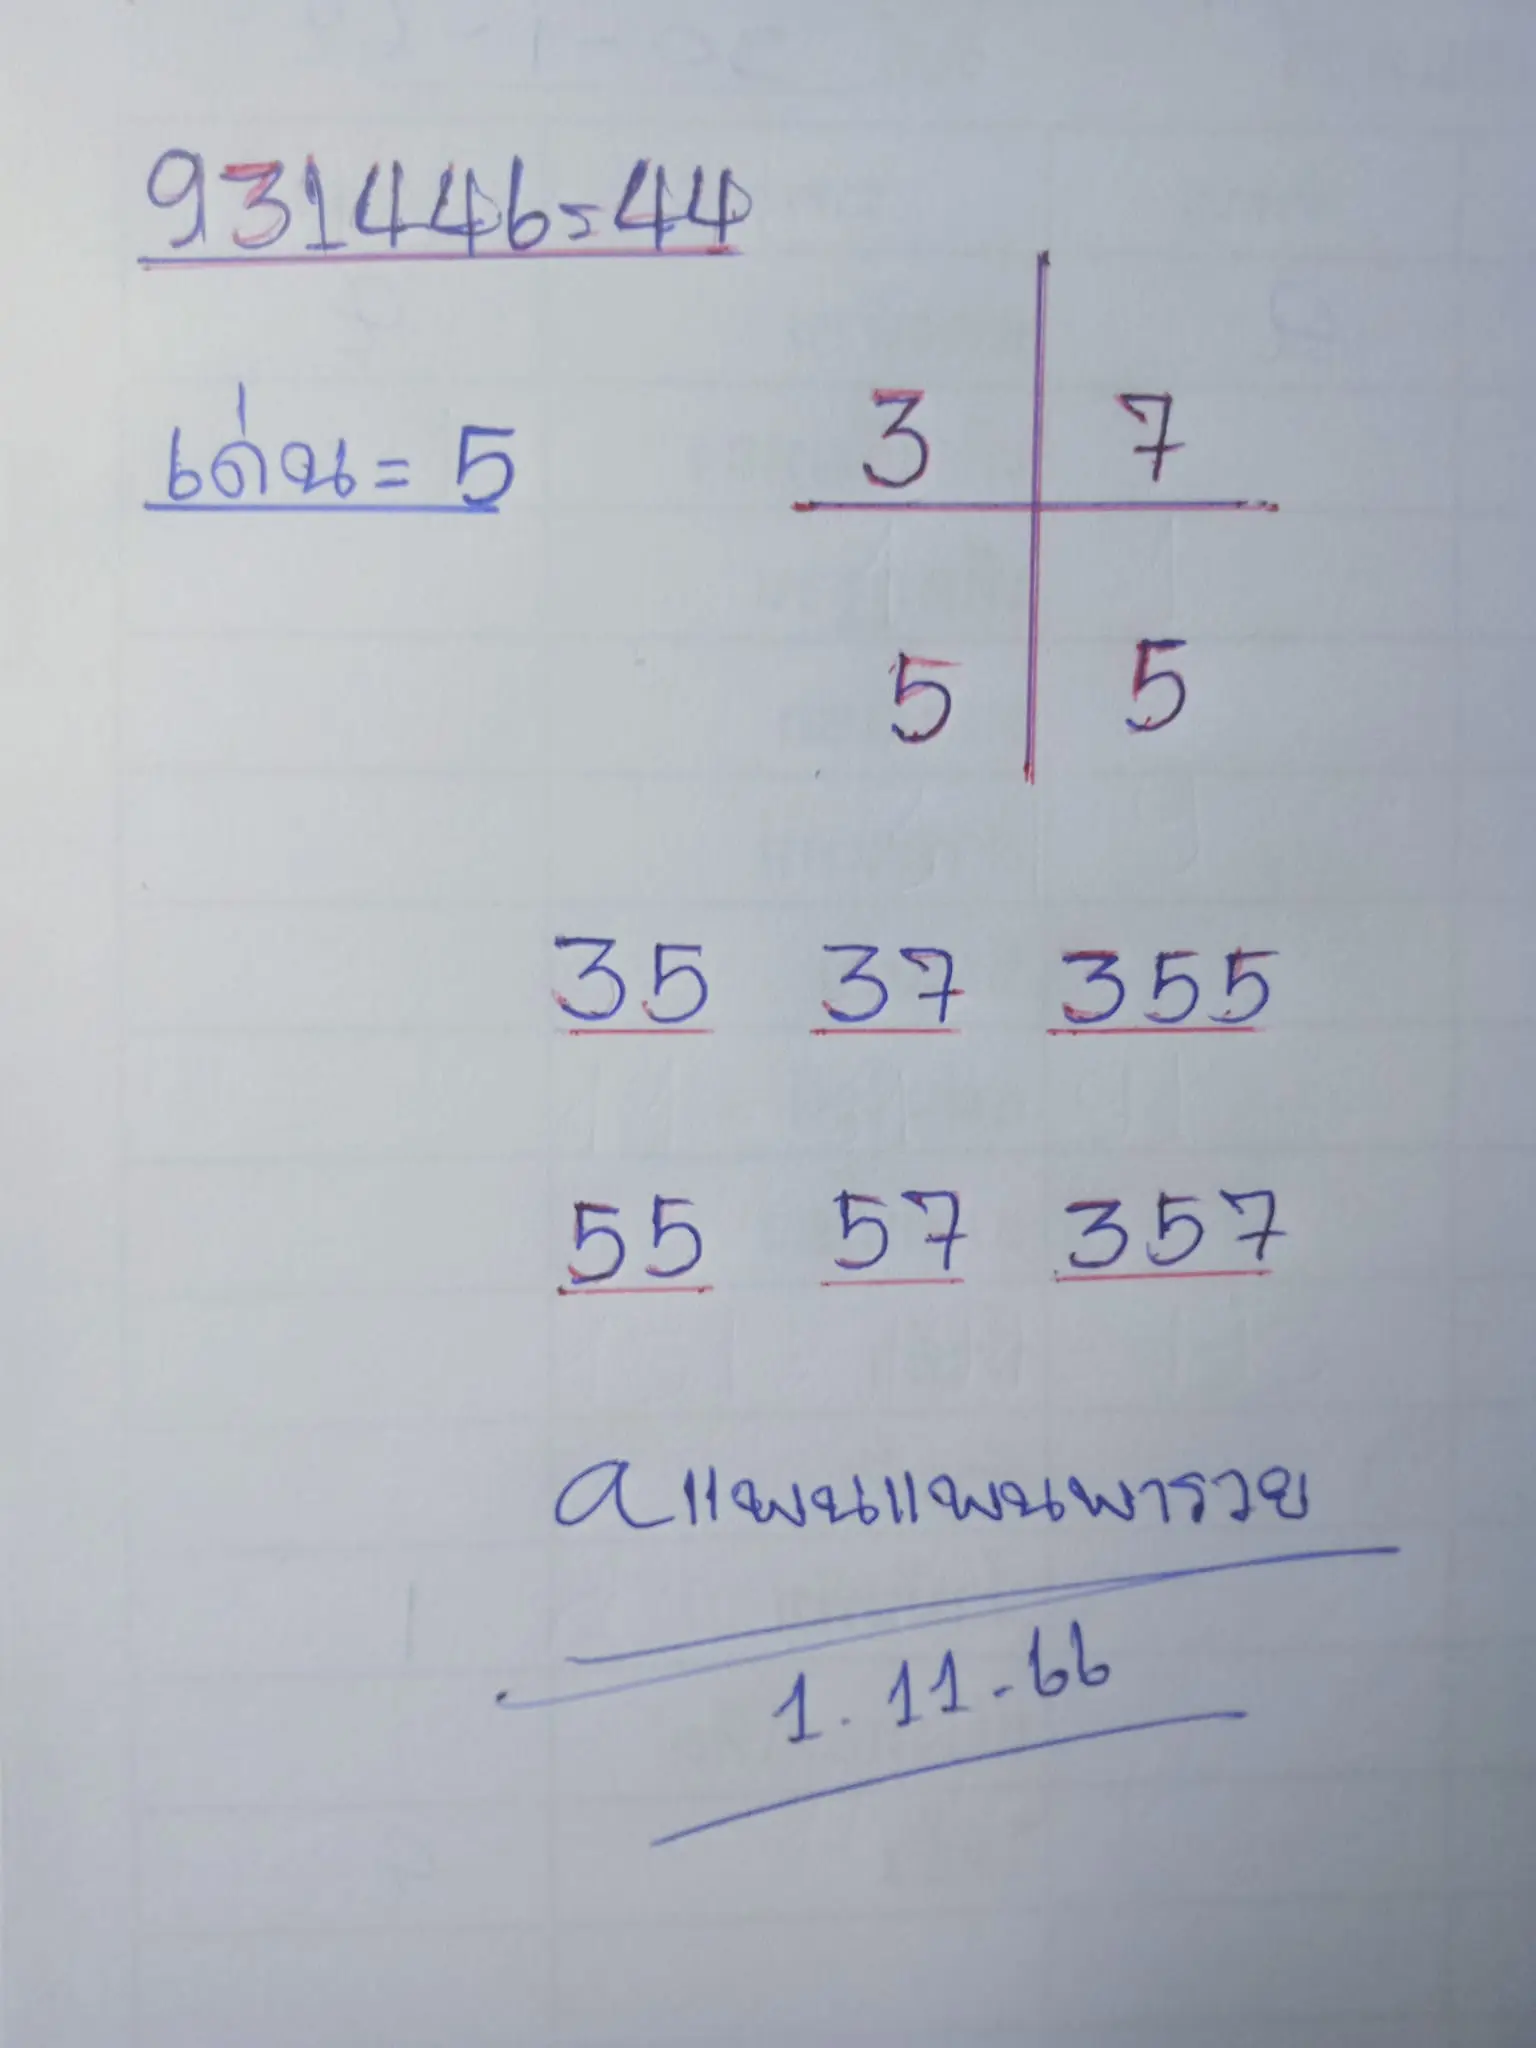 931446=44
เด่น = 5
3 7
5 5
35 37 355
55 57 357
aแพนแพนพารวย
1.11-66